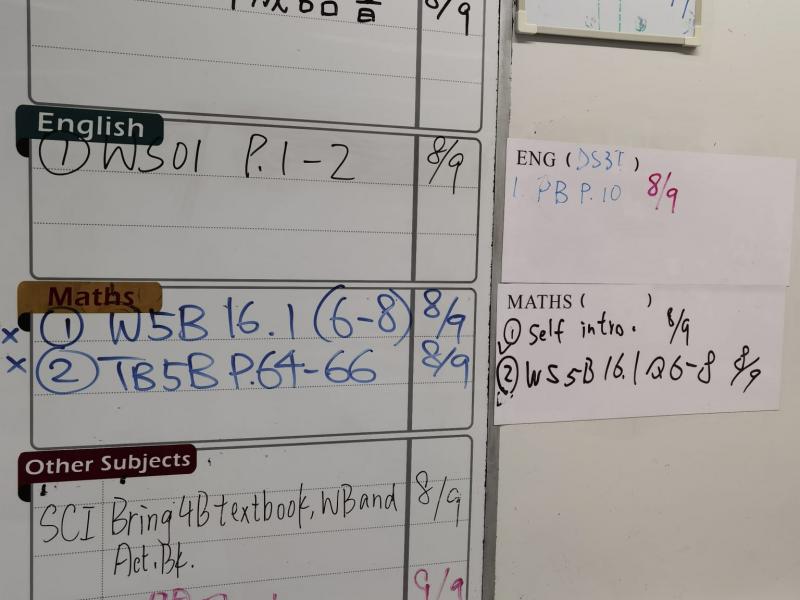 語音 8/9
English
① WS01 P.1-2 8/9
Maths
× ① W5B 16.1 (6-8) 8/9
× ② TB5B P.64-66 8/9
Other Subjects
SCI Bring 4B textbook, WB and 8/9
Act. Bk.
9/9
ENG (DS3T)
1. PB P.10 8/9
MATHS ( )
① Self intro. 8/9
② WS 5B 16.1 Q6-8 8/9